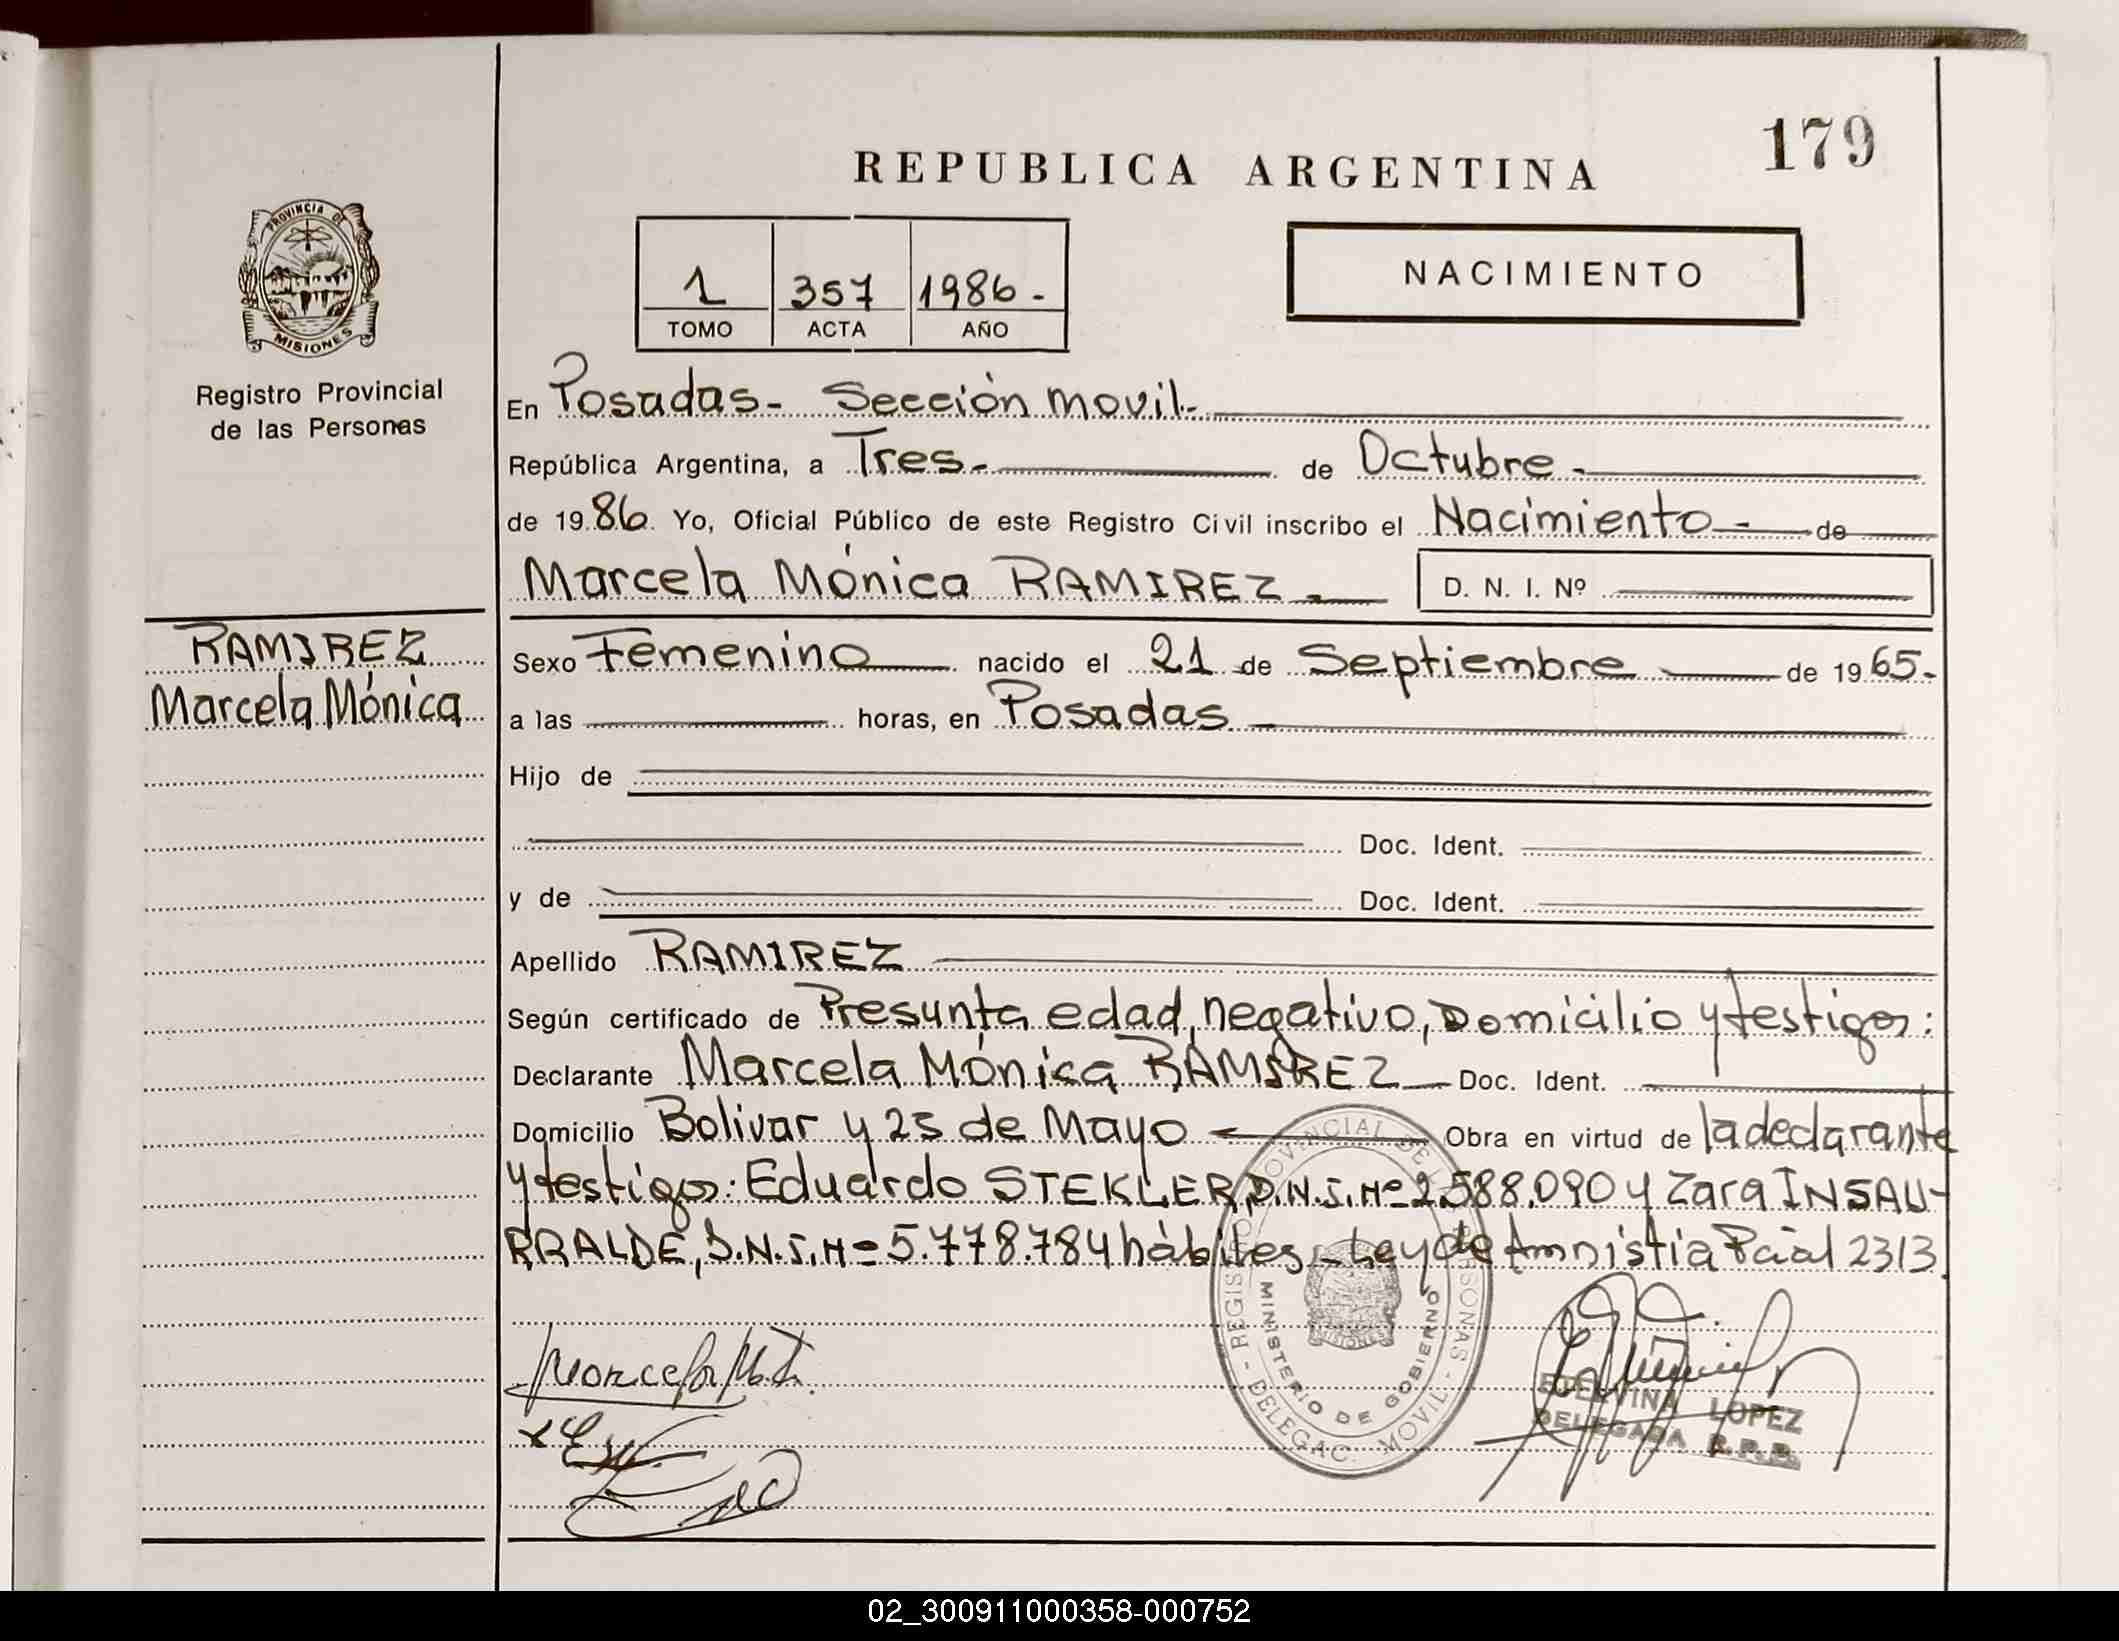 179
REPUBLICA ARGENTINA
PROVINCIA DE
MISIONES
1 357 1986-
TOMO ACTA AÑO
NACIMIENTO
Registro Provincial
de las Personas
En Posadas- Sección movil-
República Argentina, a Tres- de Octubre-
de 1986 Yo, Oficial Público de este Registro Civil inscribo el Nacimiento- de
Marcela Mónica RAMIREZ - D. N. I. Nº
RAMIREZ
Marcela Mónica
Sexo Femenino nacido el 21 de Septiembre de 1965-
a las horas, en Posadas
Hijo de
Doc. Ident.
y de Doc. Ident.
Apellido RAMIREZ
Según certificado de Presunta edad, negativo, Domicilio y testigos:
Declarante Marcela Mónica RAMIREZ Doc. Ident.
Domicilio Bolivar y 25 de Mayo Obra en virtud de la declarante
y testigos: Eduardo STEKLER, D.N.I. Nº 2.588.090 y Zara INSAU-
RRALDE, D.N.I. Nº 5.778.784 hábiles - Ley de Amnistía Pcial 2313
REGISTRO PROVINCIAL DE LAS PERSONAS - DELEGAC. MOVIL -
MINISTERIO DE GOBIERNO
MISIONES
Marcela M. R.
ETELVINA LOPEZ
DELEGADA R.P.P.
02_300911000358-000752